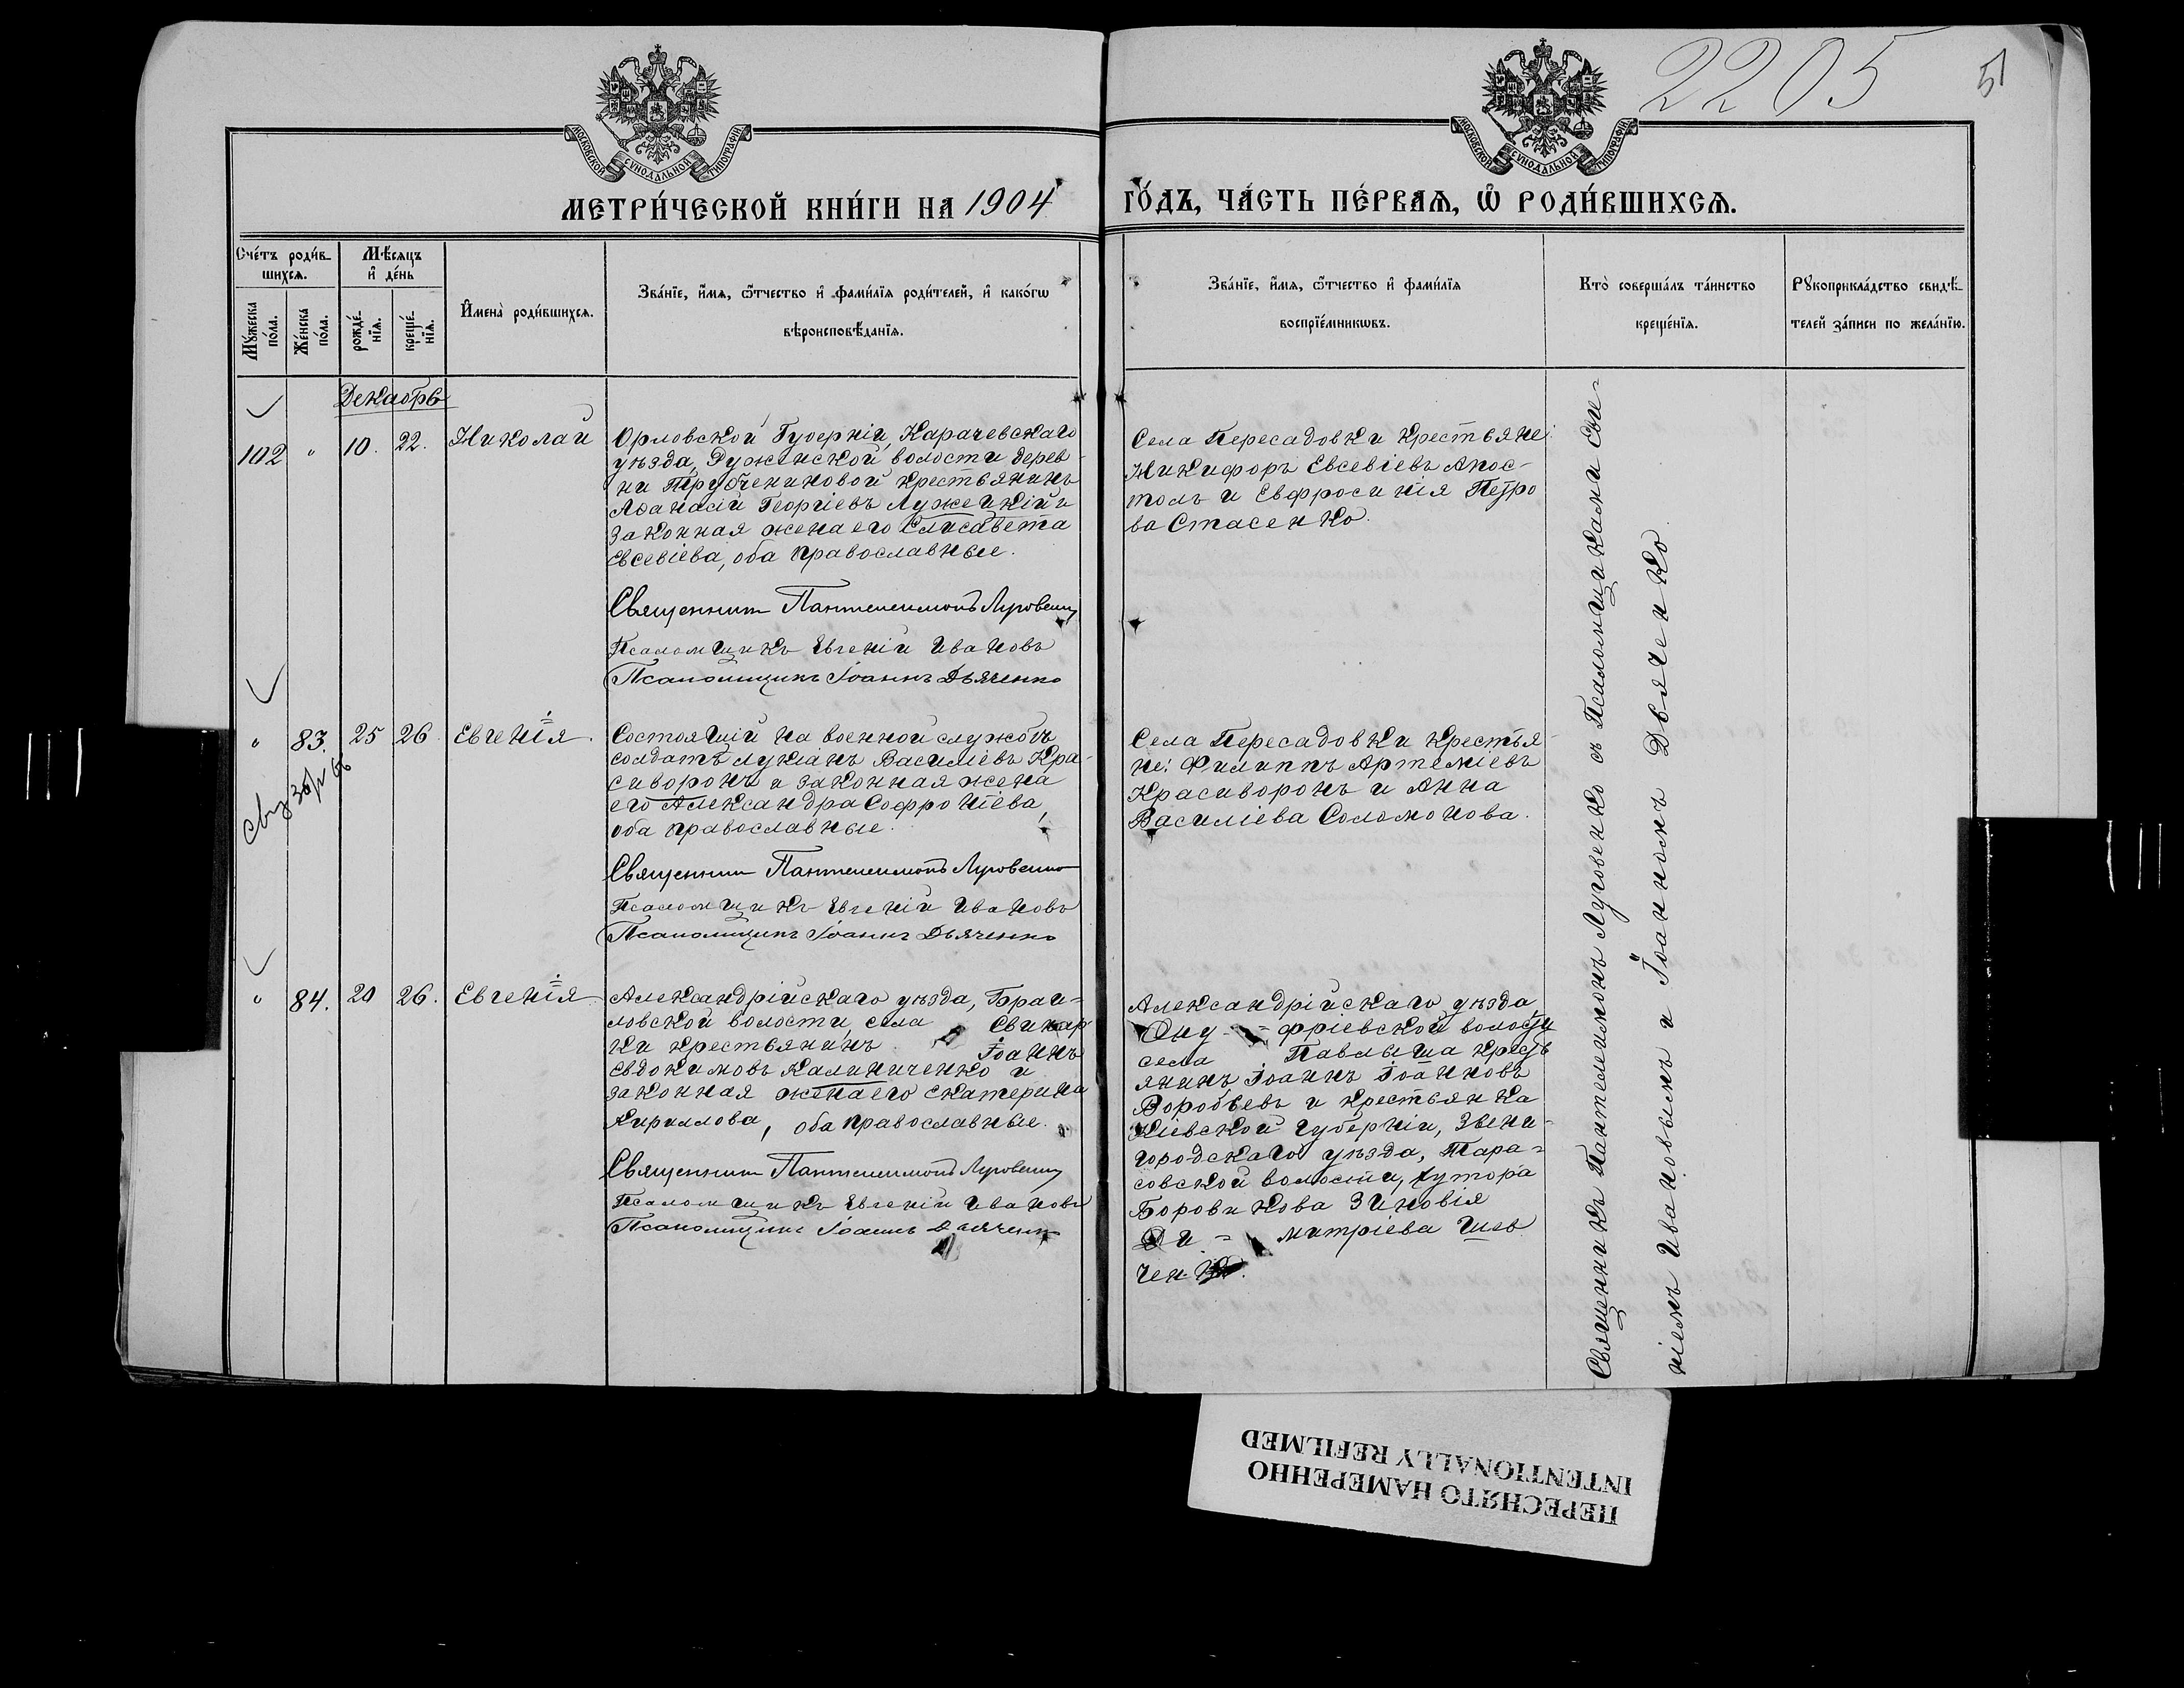 2205
51
МОСКОВСКОЙ СѴНОДАЛЬНОЙ ТИПОГРАФІИ
МОСКОВСКОЙ СѴНОДАЛЬНОЙ ТИПОГРАФІИ
МЕТРИ́ЧЕСКОЙ КНИ́ГИ НА 1904
ГО́ДЪ, ЧА́СТЬ ПЕ́РВАѦ, Ѡ҆ РОДИ́ВШИХСѦ.
Сче́тъ роди́в-
шихсѧ.
Мꙋ́жеска по́ла.
Же́нска по́ла.
Мѣ́сѧцъ
и҆ де́нь
рожде́-нїѧ.
креще́-нїѧ.
И҆мена̀ роди́вшихсѧ.
Зва́нїе, и҆́мѧ, ѻ҆́тчество и҆ фами́лїѧ роди́телей, и҆ како́гѡ
вѣроисповѣ́данїѧ.
Зва́нїе, и҆́мѧ, ѻ҆́тчество и҆ фами́лїѧ
воспрїе́мникѡвъ.
Кто̀ соверша́лъ та́инство
креще́нїѧ.
Рꙋкоприкла́дство свидѣ́-
телей за́писи по жела́нїю.
Декабрь
102 " 10. 22. Николай
Орловской Губерніи, Карачевскаго
уѣзда, Руженской волости дерев-
ни Трубчениновой крестьянинъ
Аѳанасій Георгіевъ Лужецкій и
законная жена его Елисавета
Евсевіева, оба православные.
Священник Пантелеимонъ Луговенко
Псаломщикъ Евгеній Ивановъ
Псаломщикъ Іоаннъ Дьяченко
Села Пересадовки крестьяне:
Никифоръ Евсевіевъ Апос-
толъ и Евфросинія Петро
ва Стасенко.
" 83. 25 26 Евгенія.
Состоящій на военной службѣ
солдатъ Лукіанъ Василіевъ Кра-
сиворонъ и законная жена
его Александра Софроніева,
оба православные.
Священник Пантелеимонъ Луговенко
Псаломщикъ Евгеній Ивановъ
Псаломщикъ Іоаннъ Дьяченко
Села Пересадовки крестья-
не: Филиппъ Артеміевъ
Красиворонъ и Анна
Василіева Соломонова.
" 84. 20 26. Евгенія
Александрійскаго уѣзда,
ловской волости, села Свинар
ки крестьянинъ Іоаннъ
Евдокимовъ Калиниченко и
законная жена его Екатерина
Кириллова, оба православные.
Священник Пантелеимонъ Луговенко
Псаломщикъ Евгеній Ивановъ
Псаломщикъ Іоаннъ Дьяченко
Александрійскаго уѣзда,
Ону-фріевской волости
села Павлыша кресть
янинъ Іоаннъ Іоанновъ
Воробьевъ и крестьянка
Кіевской губерніи, Звени-
городскаго уѣзда, Тара-
совской волости, хутора
Боровикова Зиновія
Ди-митріева Шев
ченко.
Священникъ Пантелеимонъ Луговенко съ Псаломщиками Евге-
ніемъ Ивановымъ и Іоанномъ Дьяченко
ПЕРЕСНЯТО НАМЕРЕННО
INTENTIONALLY REFILMED